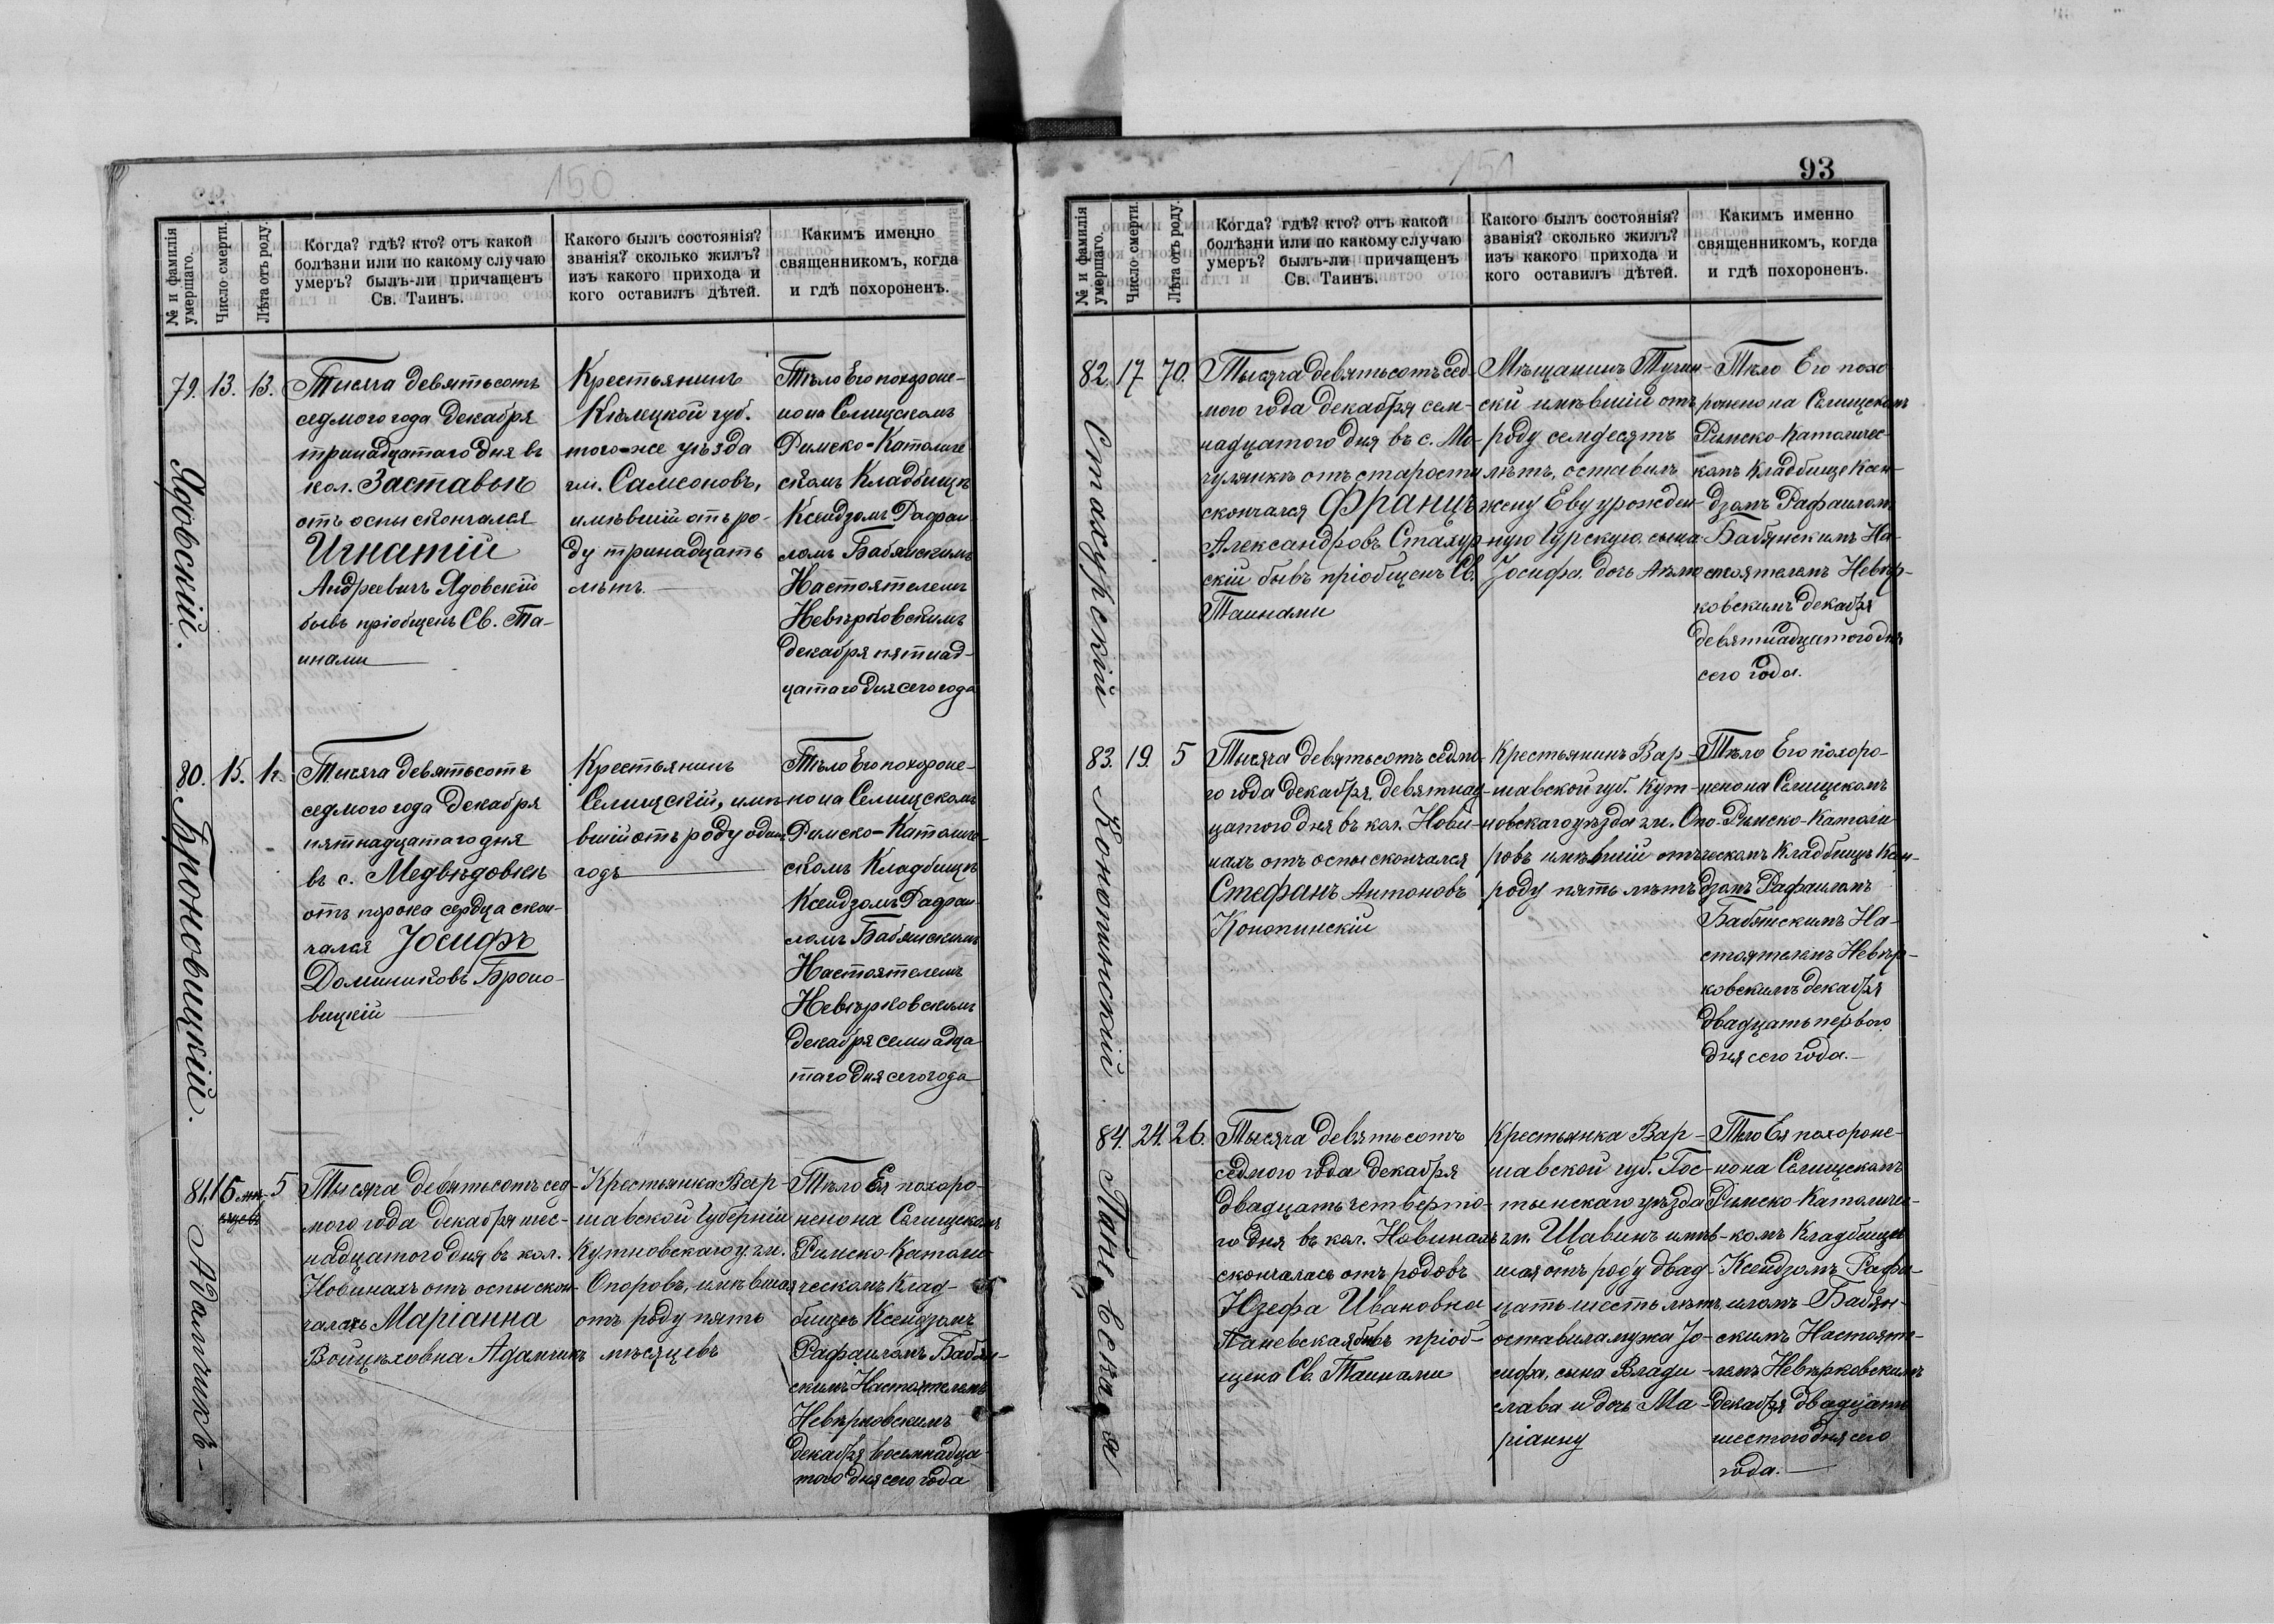 150
№ и фамилія умершаго.
Число смерти.
Лѣта отъ роду.
Когда? гдѣ? кто? отъ какой
болѣзни или по какому случаю
умеръ? былъ-ли причащенъ
Св. Таинъ.
Какого былъ состоянія?
званія? сколько жилъ?
изъ какого прихода и
кого оставилъ дѣтей.
Какимъ именно
священникомъ, когда
и гдѣ похороненъ.
79.
Ядовскій.
13.
13.
Тысяча девятьсотъ
седмого года Декабря
тринадцатаго дня въ
кол. Заставьѣ
отъ оспы скончался
Игнатій
Андреевичъ Ядовскій
бывъ пріобщенъ Св. Та-
инами
Крестьянинъ
Кѣлецкой губ.
того-же уѣзда
гм. Самсоновъ,
имѣвшій отъ ро-
ду тринадцать
лѣтъ.
Тѣло Его похороне-
но на Селищскомъ
Римско-Католиче
скомъ Кладбищѣ
Ксендзомъ Рафаи-
ломъ Бабянскимъ
Настоятелемъ
Невѣрковскимъ
декабря пятнад-
цатаго дня сего года
80.
Броновицкій.
15.
1 г.
Тысяча девятьсотъ
седмого года Декабря
пятнадцатаго дня
въ с. Медвѣдовкѣ
отъ порока сердца скон-
чался Іосифъ
Доминиковъ Броно-
вицкій
Крестьянинъ
Селищскій, имѣ-
вшій отъ роду одинъ
годъ
Тѣло Его похороне-
но на Селищскомъ
Римско-Католиче-
скомъ Кладбищѣ
Ксендзомъ Рафаи-
ломъ Бабянскимъ
Настоятелемъ
Невѣрковскимъ
декабря семнадца
таго дня сего года
81.
Адамчикъ -
16
5
Тысяча девятьсотъ сед-
мого года декабря шес-
надцатого дня въ кол.
Новинахъ отъ оспы скон-
чалась Маріанна
Войцѣховна Адамчикъ
Крестьянка Вар-
шавской Губерніи
Кутновского у. гм.
Опоровъ, имѣвшая
отъ роду пять
мѣсяцевъ
Тѣло Ея похоро-
нено на Селищскомъ
Римско-Католи-
ческомъ Клад-
бищѣ Ксендзомъ
Рафаиломъ Бабян-
скимъ Настоятелемъ
Невѣрковскимъ
декабря восемнадца-
того дня сего года
151
93
№ и фамилія умершаго.
Число смерти.
Лѣта отъ роду.
Когда? гдѣ? кто? отъ какой
болѣзни или по какому случаю
умеръ? былъ-ли причащенъ
Св. Таинъ.
Какого былъ состоянія?
званія? сколько жилъ?
изъ какого прихода и
кого оставилъ дѣтей.
Какимъ именно
священникомъ, когда
и гдѣ похороненъ.
82.
Стахурскій
17
70.
Тысяча девятьсотъ сед-
мого года декабря сем-
надцатого дня въ с. Мо-
чулянкѣ отъ старости
скончался Францъ
Александровъ Стахур-
скій бывъ пріобщенъ Св.
Таинами
Мѣщанинъ Тучин-
скій имѣвшій отъ
роду семдесятъ
лѣтъ, оставилъ
жену Еву урожден-
ную Гурскую, сына
Іосифа, дочь
Тѣло Его похо
ронено на Селищскомъ
Римско-Католичес-
комъ Кладбище Ксен-
дзомъ Рафаиломъ
Бабянскимъ На-
стоятелемъ Невѣр-
ковскимъ декабря
девятнадцатого дня
сего года.
83.
Конопинскій
19.
5
Тысяча девятьсотъ седмо-
го года декабря девятнад-
цатого дня въ кол. Нови-
нахъ отъ оспы скончался
Стефанъ Антоновъ
Конопинскій
Крестьянинъ Вар-
шавской губ. Кут-
новскаго уѣзда гм. Опо-
ровъ имѣвшій отъ
роду пять лѣтъ
Тѣло Его похоро-
нено на Селищскомъ
Римско-Католи
ческомъ Кладбищѣ Ксен-
дзомъ Рафаиломъ
Бабянскимъ На-
стоятелемъ Невѣр-
ковскимъ декабря
двадцать первого
дня сего года.-
84.
Паневская
24.
26.
Тысяча девятьсотъ
седмого года декабря
двадцать четверто-
го дня въ кол. Новинахъ
скончалась отъ родовъ
Юзефа Ивановна
Паневская бывъ пріоб-
щена Св. Таинами
Крестьянка Вар-
шавской губ. Гос-
тынскаго уѣзда
гм. Щавинъ имѣв-
шая отъ роду двад-
цать шесть лѣтъ,
оставила мужа Іо-
сифа, сына Влади-
слава и дочь Ма-
ріанну
Тѣло Ея похороне-
но на Селищскомъ
Римско-Католичес-
комъ Кладбищѣ
Ксендзомъ Рафа-
иломъ Бабян-
скимъ Настояте-
лемъ Невѣрковскимъ
декабря двадцать
шестого дня сего
года.